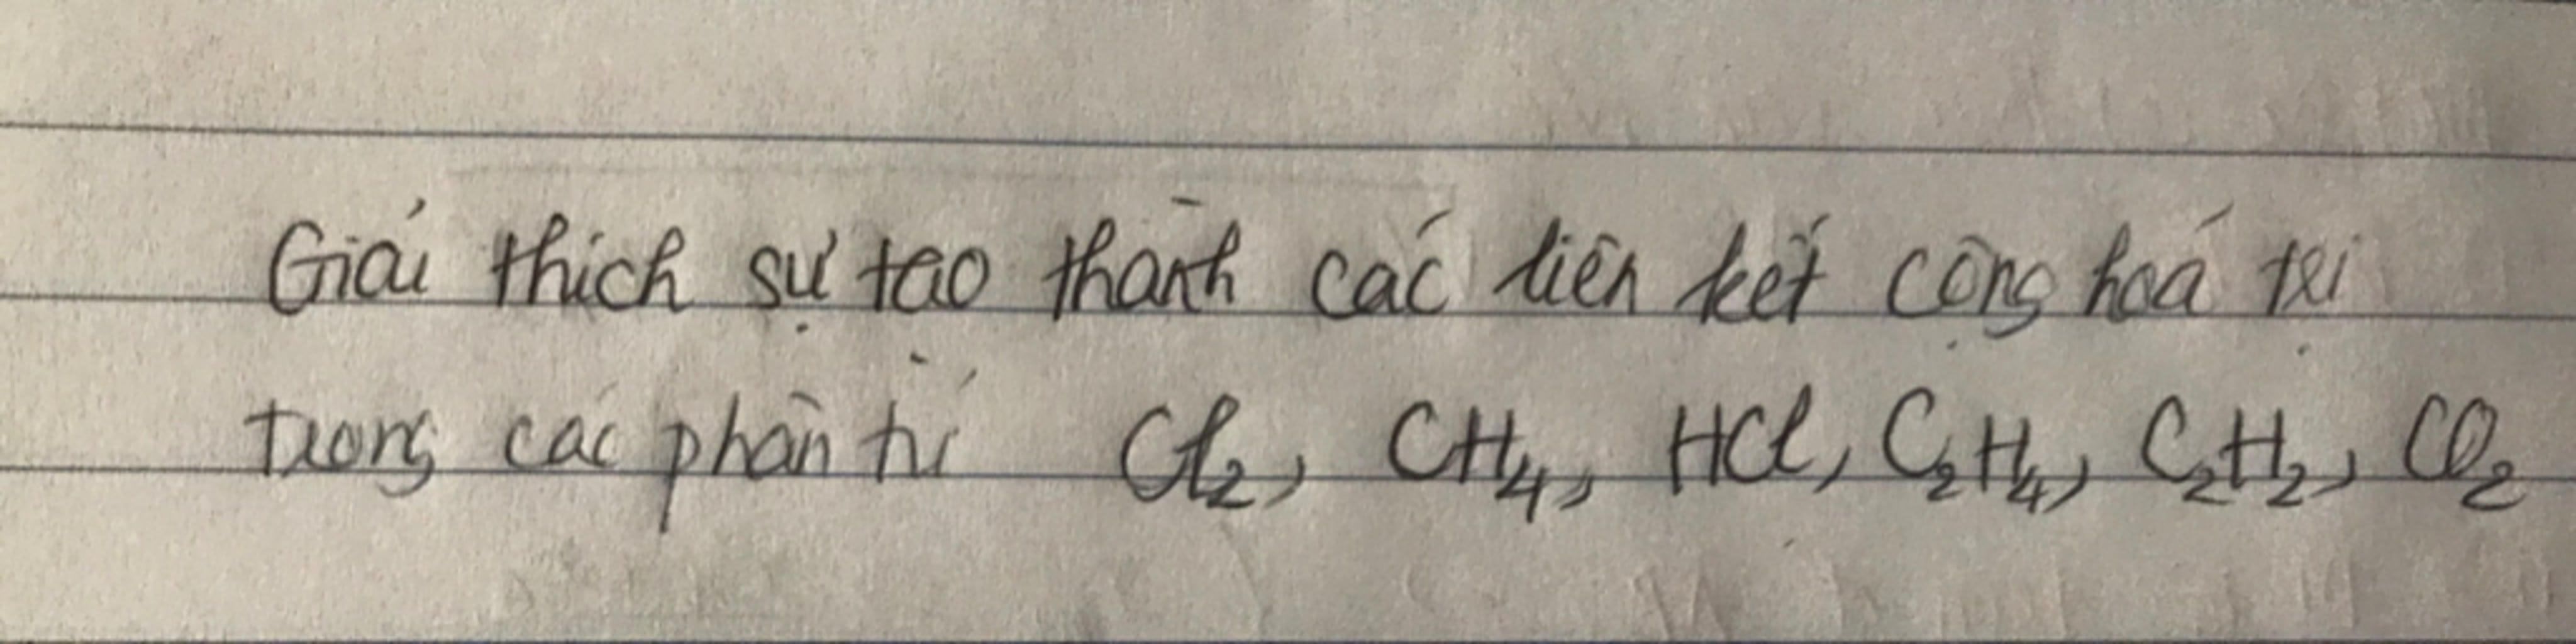 Giải thích sự tạo thành các liên kết cộng hoá trị
trong các phân tử Cl₂, CH₄, HCl, C₂H₄, C₂H₂, CO₂